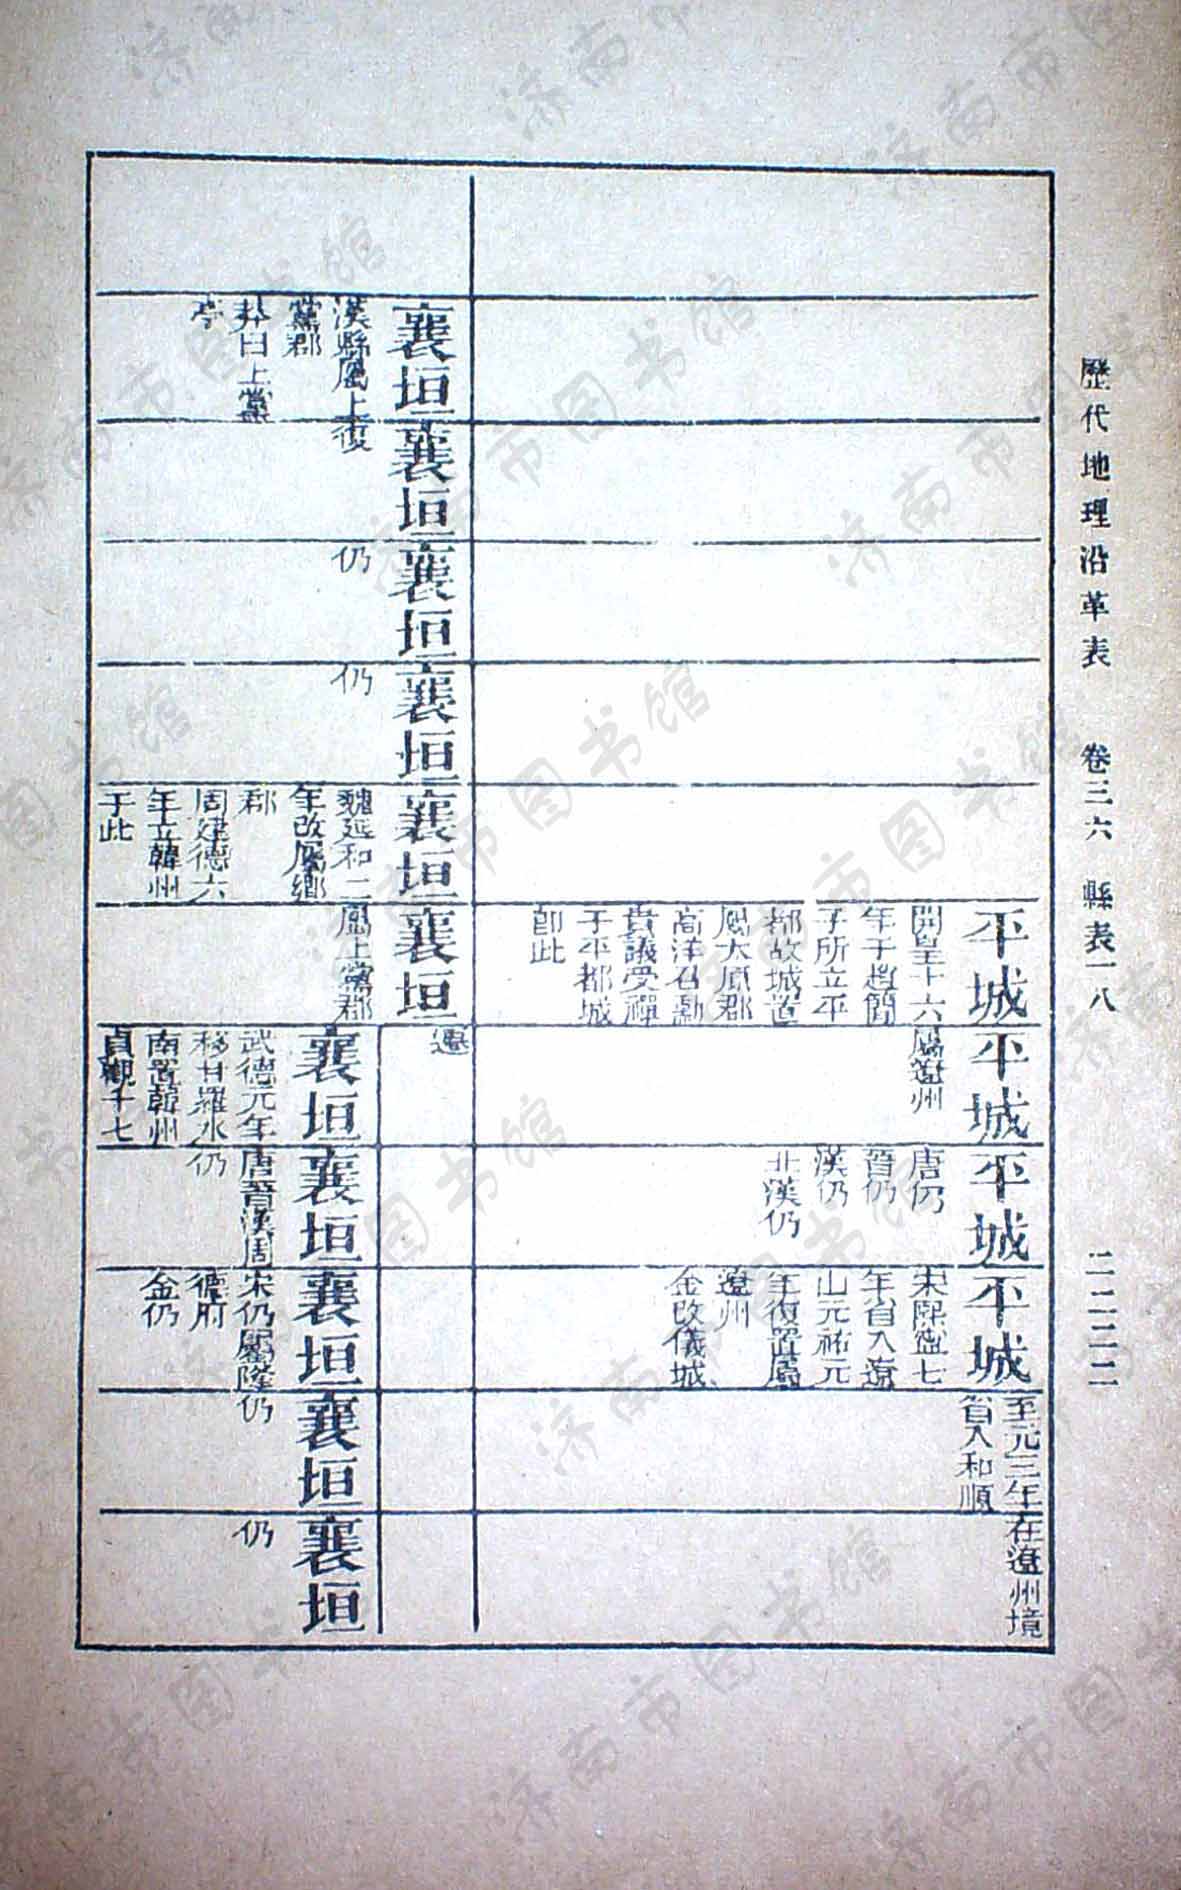 歷代地理沿革表 卷三六 縣表一八 二二二二
平城
開皇十六
年于趙簡
子所立平
都故城置
屬太原郡
高洋召勳
貴議受禪
于平都城
卽此
平城
屬遼州
平城
唐仍
晉仍
漢仍
北漢仍
平城
宋熙寧七
年省入遼
山元祐元
年復置屬
遼州
金改儀城
至元三年
省入和順
在遼州境
襄垣
漢縣屬上
黨郡
莽曰上黨
亭
襄垣
復
襄垣
仍
襄垣
仍
襄垣
魏延和二
年改屬鄉
郡
周建德六
年立韓州
于此
襄垣
屬上黨郡
遷
襄垣
武德元年
移甘羅水
南置韓州
貞觀十七
襄垣
唐晉漢周
仍
襄垣
宋仍屬隆
德府
金仍
襄垣
仍
襄垣
仍
济南市图书馆